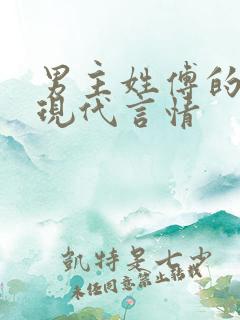 男主姓傅的
現代言情
凱特是七少
未任同意禁止轉載